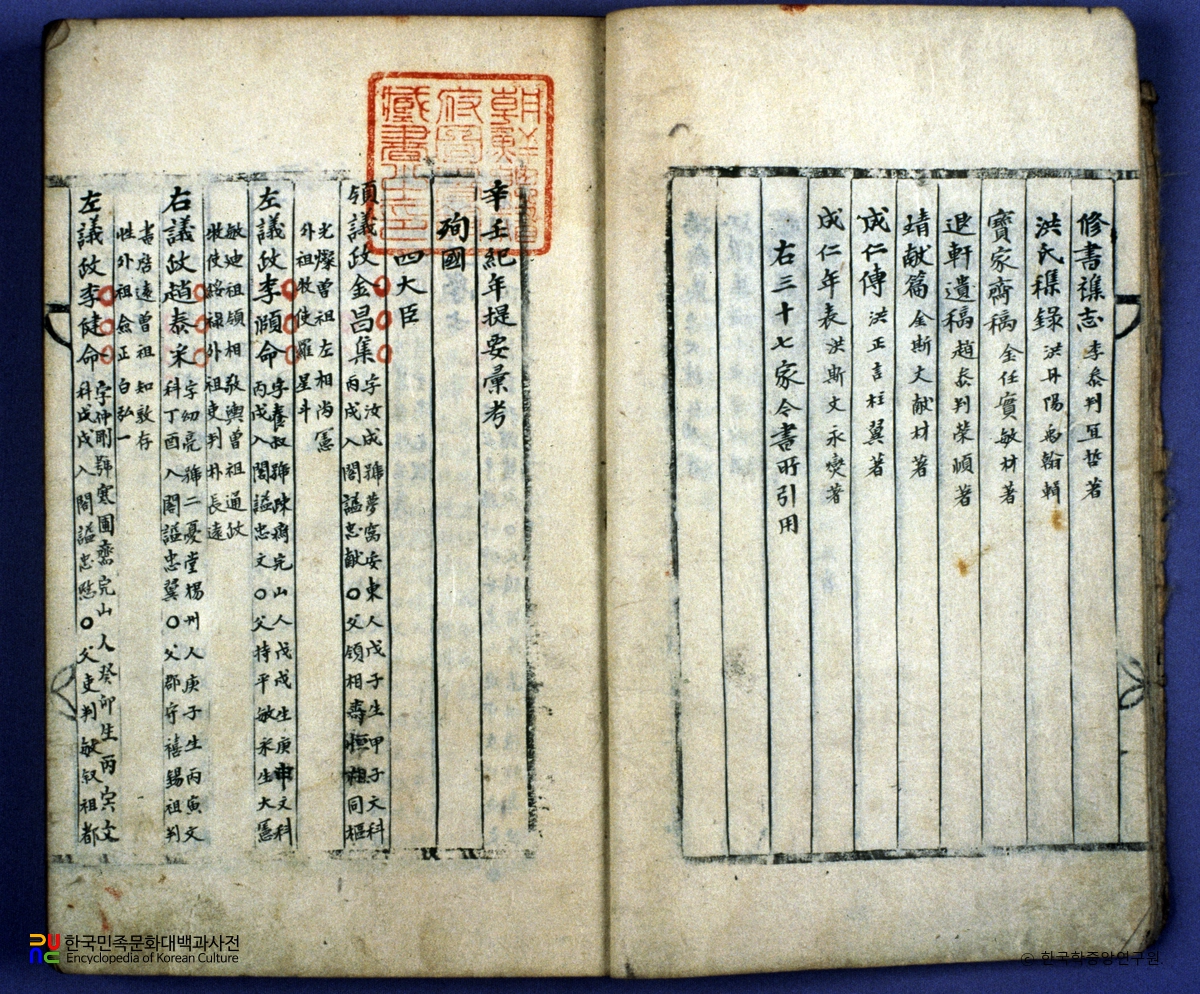 修書襍志 李參判宜哲著
洪氏稡錄 洪丹陽禹翰輯
寶家齋稿 金任實敏材著
退軒遺稿 趙參判榮順著
靖獻篇 金斯文献材著
成仁傳 洪正言柱翼著
成仁年表 洪斯文永燮著
右三十七家今書所引用
朝鮮總督
府圖書館
藏書之印
辛壬紀年提要彙考
殉國
四大臣
領議政金昌集 字汝成號夢窩安東人戊子生甲子文科
丙戌入閣謚忠獻○父領相壽恒祖同樞
光燦曾祖左相尚憲
外祖牧使羅星斗
左議政李頤命 字養叔號踈齋完山人戊戌生庚申文科
丙戌入閣謚忠文○父持平敏采生大憲
敏迪祖領相敬輿曾祖通政
牧使綏祿外祖吏判朴長遠
右議政趙泰采 字幼亮號二憂堂楊州人庚子生丙寅文
科丁酉入閣謚忠翼○父郡守禧錫祖判
書啓遠曾祖知敦存
性外祖僉正白弘一
左議政李健命 字仲剛號寒圃齋完山人癸卯生丙寅文
科戊戌入閣謚忠愍○父吏判敏叙祖都
한국민족문화대백과사전
Encyclopedia of Korean Culture
© 한국학중앙연구원